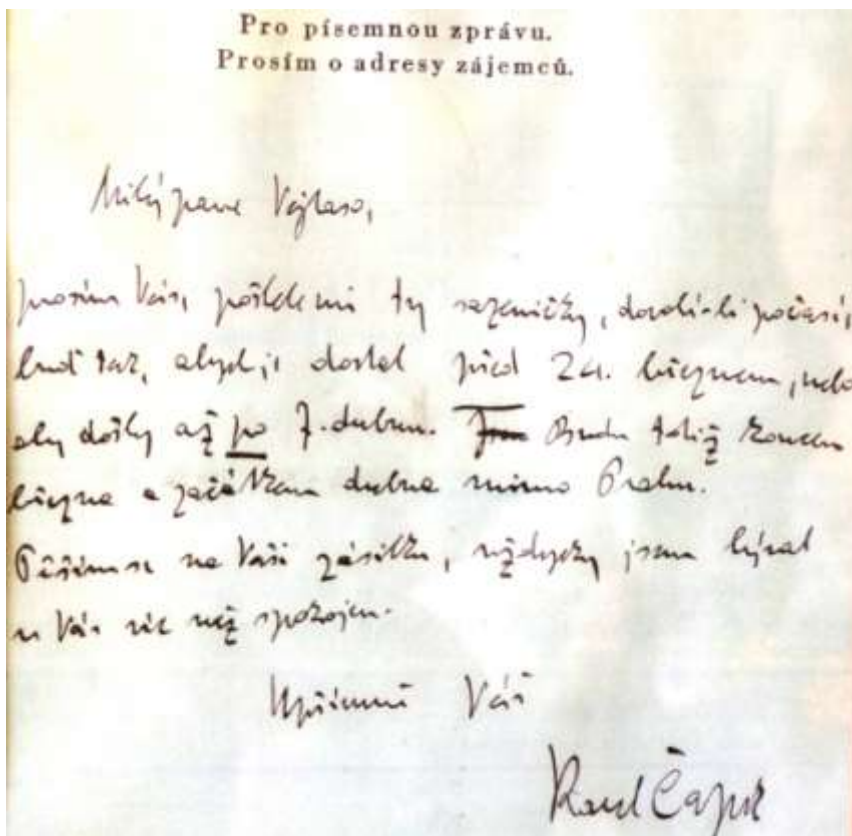 Pro písemnou zprávu.
Prosím o adresy zájemců.
Milý pane Vojtaso,
prosím Vás, pošlete mi ty sazeničky, dovolí-li počasí,
buď tak, abych je dostal před 24. březnem, nebo
aby došly až po 7. dubnu. Budu totiž koncem
března a začátkem dubna mimo Prahu.
Těším se na Vaši zásilku, vždycky jsem býval
u Vás víc než spokojen.
Upřímně Váš
Karel Čapek